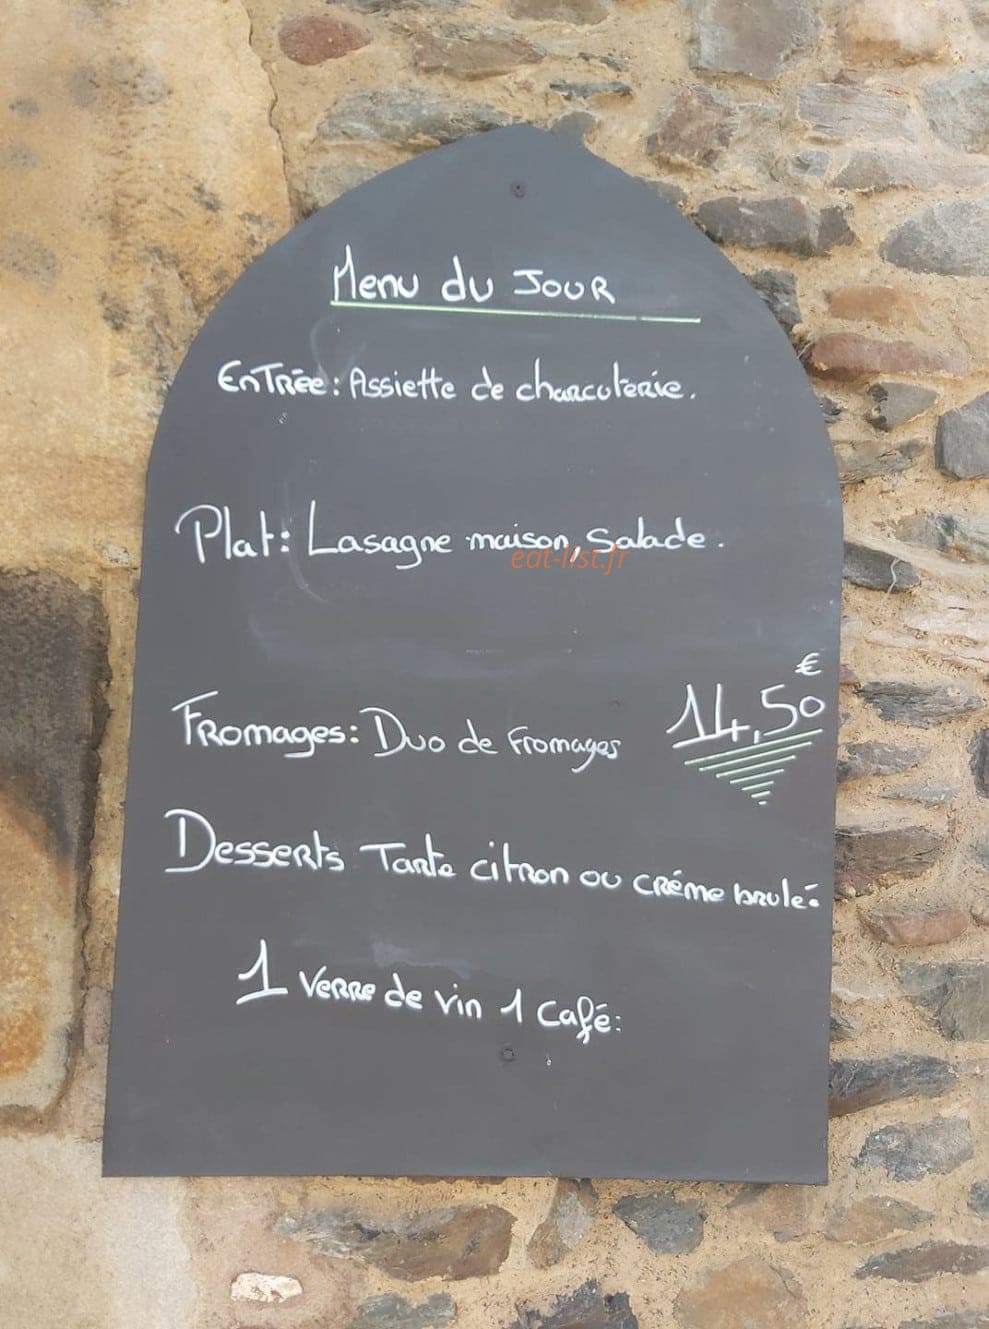 Menu du JOUR
EnTRée: Assiette de charcuterie.
Plat: Lasagne maison, Salade.
eat-list.fr
€
14,50
Fromages: Duo de Fromages
Desserts Tarte citron ou créme brulé.
1 verre de vin 1 Café: